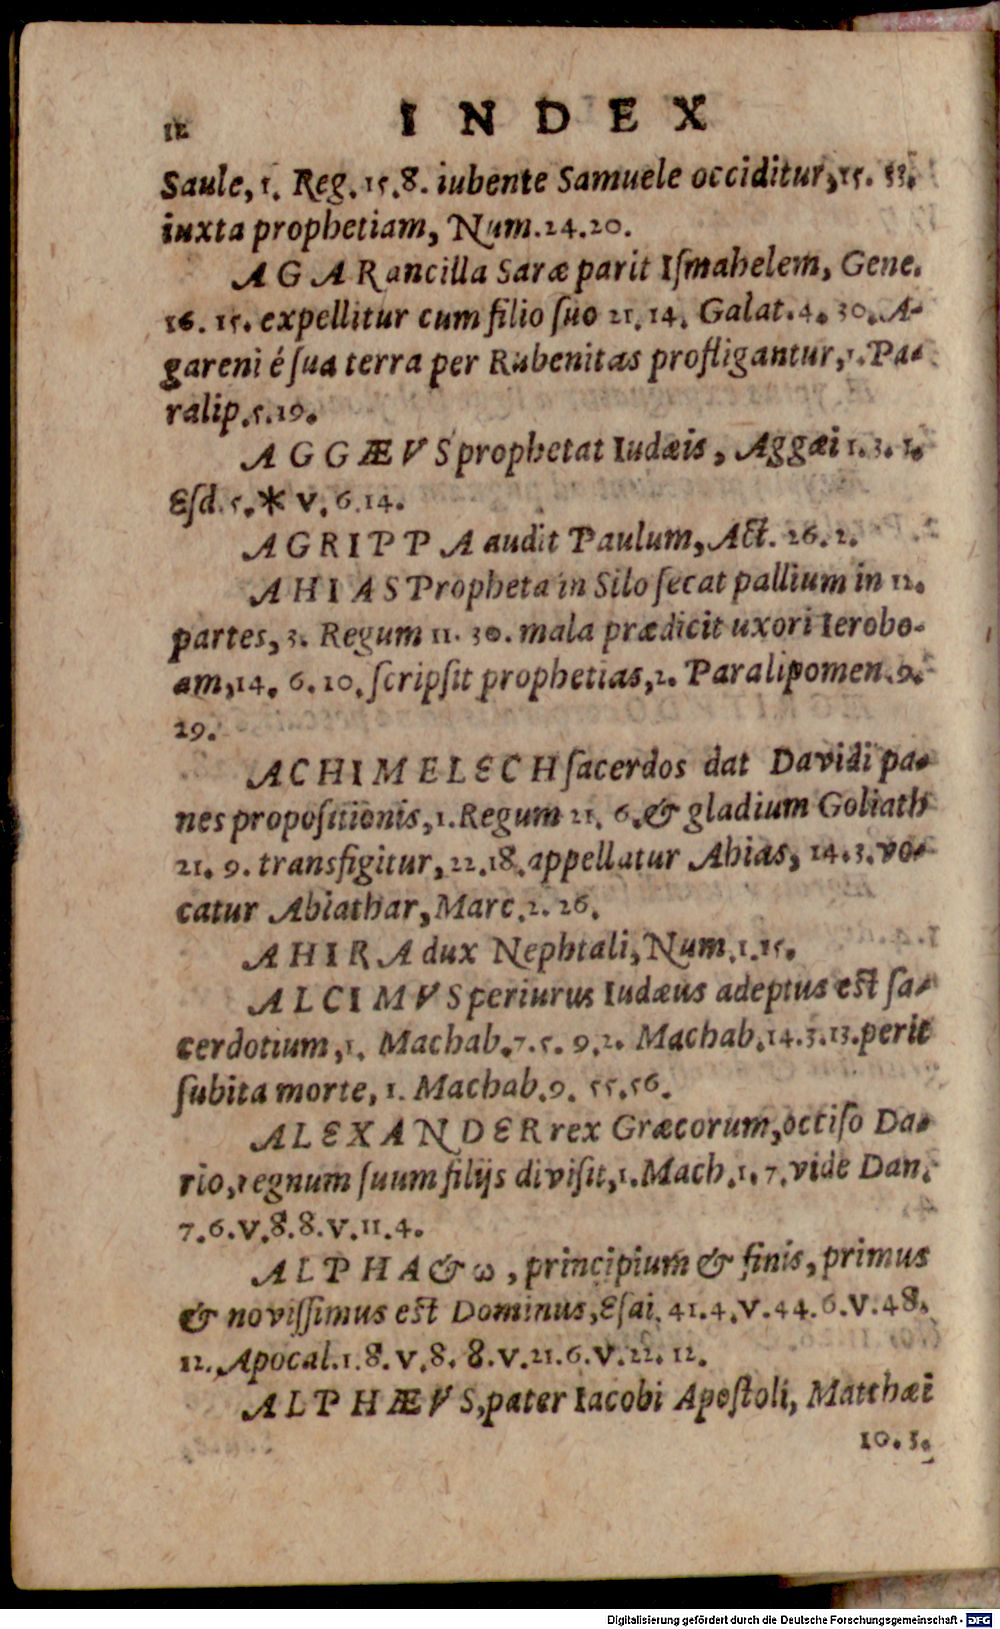 12 INDEX
Saule, 1. Reg. 15.8. iubente Samuele occiditur, 15. 33.
iuxta prophetiam, Num.24.20.
AGAR ancilla Saræ parit Iſmahelem, Gene.
16. 15. expellitur cum filio ſuo 21. 14. Galat. 4. 30. A-
gareni é ſua terra per Rubenitas profligantur, 1. Pa-
ralip. 5.19.
AGGÆVS prophetat Iudæis, Aggæi 1. 3. 1.
Eſd. 5. * V. 6.14.
AGRIPPA audit Paulum, Act. 26. 2.
AHIAS Propheta in Silo ſecat pallium in 12.
partes, 3. Regum 11. 30. mala prædicit uxori Ierobo-
am, 14. 6. 10. ſcripſit prophetias, 2. Paralipomen. 9.
29.
ACHIMELECH ſacerdos dat Davidi pa-
nes propoſitionis, 1. Regum 21. 6. & gladium Goliath
21. 9. transfigitur, 22.18. appellatur Ahias, 14.3. vo-
catur Abiathar, Marc. 2. 26.
AHIRA dux Nephtali, Num. 1.15.
ALCIMVS periurus Iudæus adeptus est ſa-
cerdotium, 1. Machab. 7. 5. 9. 2. Machab. 14.3.13. perit
ſubita morte, 1. Machab. 9. 55.56.
ALEXANDER rex Græcorum, occiſo Da-
rio, regnum ſuum filijs diviſit, 1. Mach. 1. 7. vide Dan.
7.6.V.8.8.V.11.4.
ALPHA & ω, principium & finis, primus
& noviſſimus est Dominus, Eſai. 41.4.V.44.6.V.48.
12. Apocal. 1.8.V.8. 8.V.21.6.V.22. 12.
ALPHÆVS, pater Iacobi Apoſtoli, Matthæi
10. 3.
Digitalisierung gefördert durch die Deutsche Forschungsgemeinschaft - DFG